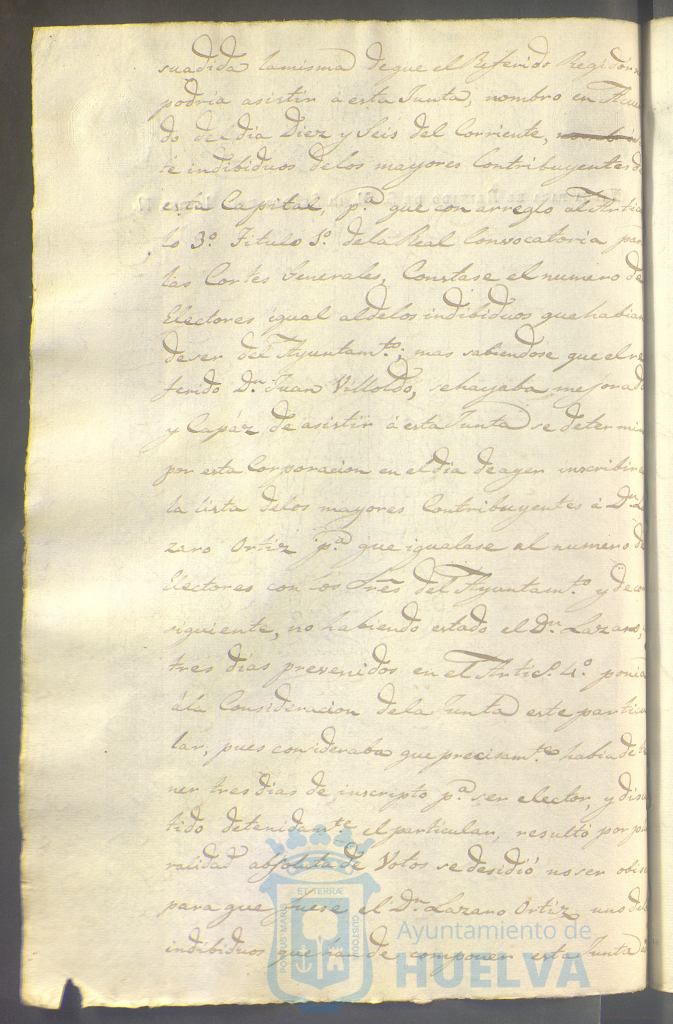 suadida lamisma deque el Referido Regidor
podria asistir á esta Junta, nombro en Acuer
do del dia Diez y Seis del Corriente,
te indibiduos delos mayores Contribuyentes de
esta Capital, p.ª que con arreglo al Artic
lo 3º. Titulo 1º. dela Real Convocatoria par
las Cortes Generales, Constase el numero de
Electores igual aldelos indibiduos que habian
deser del Ayuntam.to; mas sabiendose que el re
ferido D.n Juan Villoldo, sehayaba mejorado
y Capáz de asistir á esta Junta se determin
por esta Corporacion en el dia de ayer inscribir e
la lista delos mayores Contribuyentes á D.n L
zaro Ortiz p.ª que igualase al numero de
Electores con los Sres del Ayuntam.to y decon
siguiente, no habiendo estado el D.n Lazaro,
tres dias prevenidos en el Artic.º 4.º ponia
ála Consideracion dela Junta este particu
lar, pues consideraba que precisam.te habia de te
ner tres dias de inscripto p.ª ser elector, y discu
tido detenidam.te el particular, resultó por plu
ralidad absoluta de Votos se desidió no ser obis
para que fuese el D.n Lazaro Ortiz uno delos
indibiduos que han de componer esta Junta
PORTUS MARIS ET TERRÆ CUSTODIA
Ayuntamiento de
HUELVA